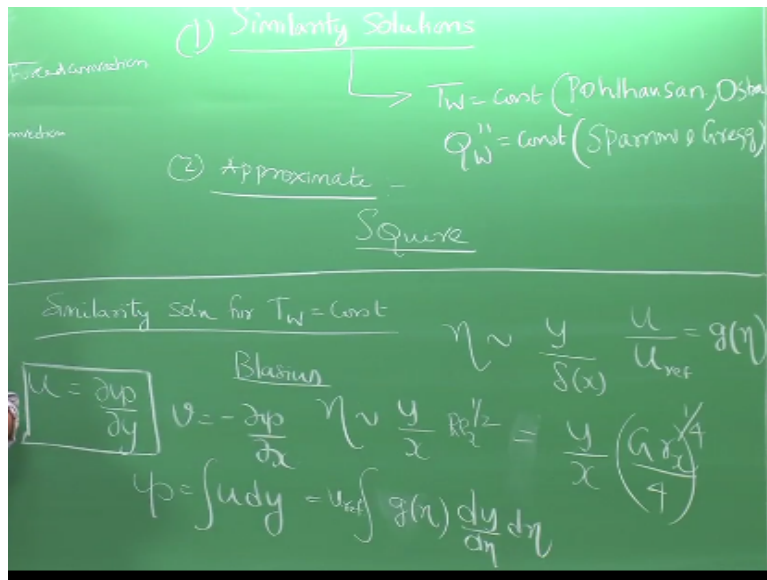 (1) Similarity Solutions
Forced convection
→ Tw = const (Pohlhausan, Ostra
nvection
Qw'' = const (Sparrow & Gregg)
(2) Approximate -
Squire
Similarity soln for Tw = Const
η ~ y/δ(x) u/u_ref = g(η)
Blasius
u = ∂ψ/∂y v = -∂ψ/∂x η ~ y/x Re_x^1/2 = y/x (Gr_x/4)^1/4
ψ = ∫udy = u_ref ∫ g(η) dy/dη dη